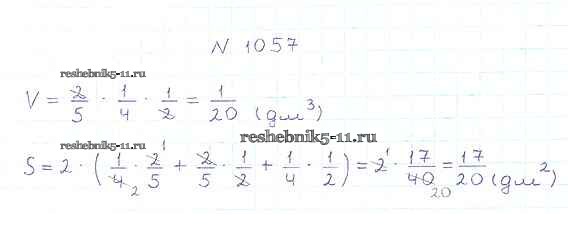 N 1057
reshebnik5-11.ru
V = 2/5 · 1/4 · 1/2 = 1/20 (дм³)
reshebnik5-11.ru
reshebnik5-11.ru
S = 2 · (1/4 2 · 2 1/5 + 2/5 · 1/2 + 1/4 · 1/2) = 2 1 · 17/40 20 = 17/20 (дм²)